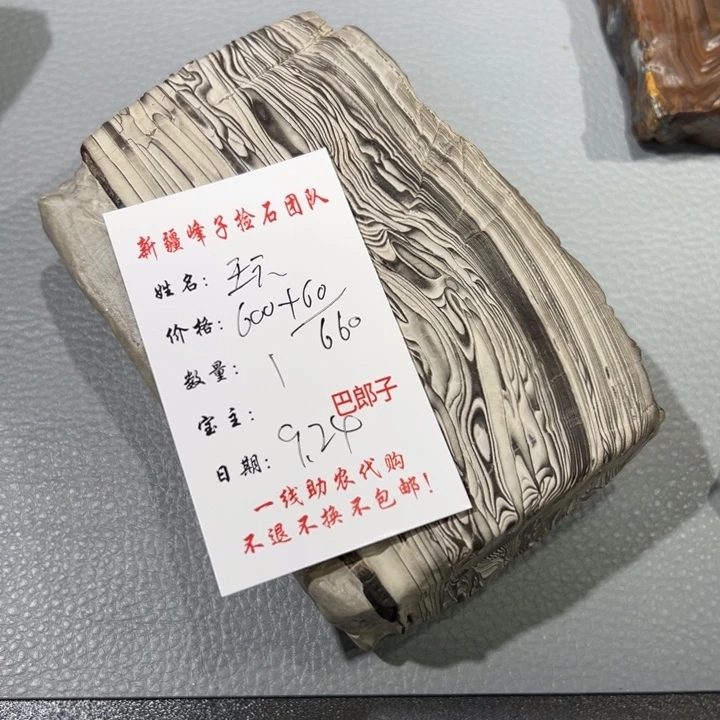 新疆峰子捡石团队
姓名:
价格: 600+60
660
数量: 1
宝主: 巴郎子
日期: 9.24
一线助农代购
不退不换不包邮!